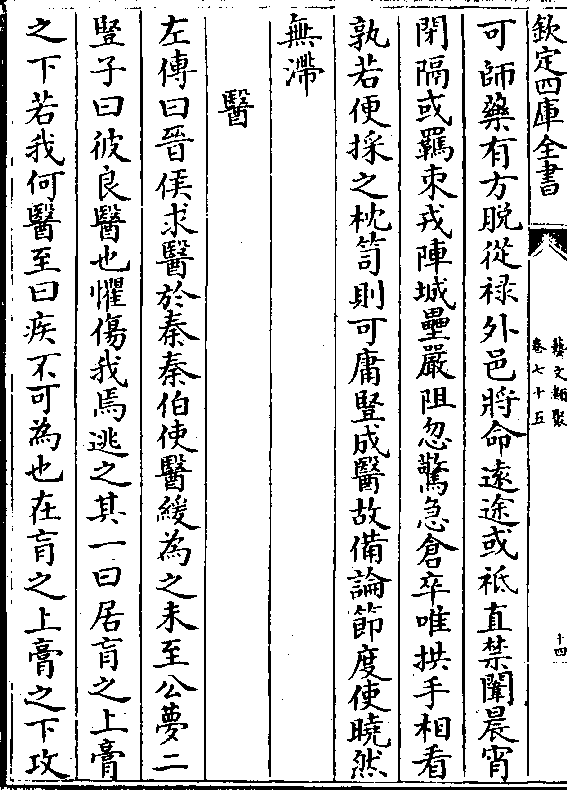 欽定四庫全書
藝文類聚
卷七十五
十四
可師藥有方脫從禄外邑將命逺途或祇直禁闈晨宵
閉隔或羈束戎陣城壘嚴阻忽驚急倉卒唯拱手相看
孰若便採之枕笥則可庸豎成醫故備論節度使曉然
無滯
醫
左傳曰晉侯求醫於秦秦伯使醫緩為之未至公夢二
豎子曰彼良醫也懼傷我焉逃之其一曰居肓之上膏
之下若我何醫至曰疾不可為也在肓之上膏之下攻